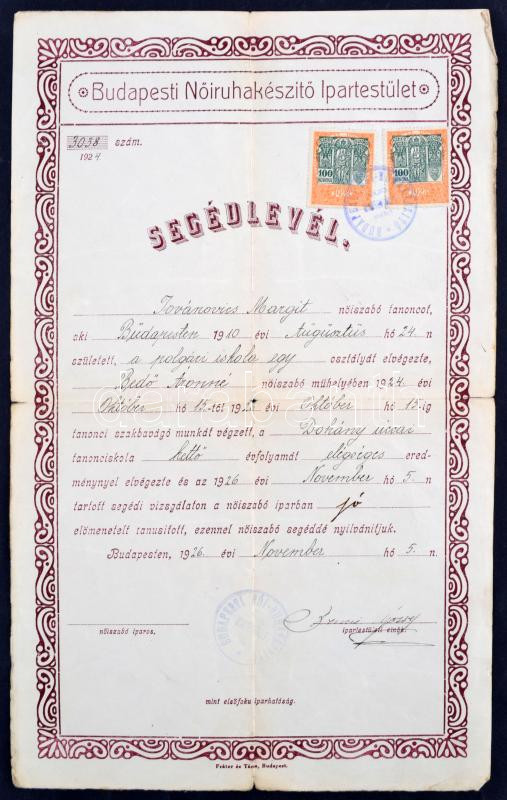 Budapesti Nőiruhakészitő Ipartestület
3038 szám.
1924
100 100
SEGÉDLEVÉL.
Jovánovics Margit nőiszabó tanoncot,
aki Budapesten 1910 évi Augusztus hó 24 n
született, a polgári iskola egy osztályát elvégezte,
Bedő Áronné nőiszabó műhelyében 1924 évi
Október hó 15-től 192 évi Október hó 15-ig
tanonci szakbavágó munkát végzett, a Dohány utcai
tanonciskola kettő évfolyamát elégséges ered-
ménynyel elvégezte és az 1926 évi November hó 5.n
tartott segédi vizsgálaton a nőiszabó iparban jó
előmenetelt tanusitott, ezennel nőiszabó segéddé nyilvánitjuk.
Budapesten, 1926 évi November hó 5. n.
nőiszabó iparos. ipartestületi elnök.
mint elsőfoku iparhatóság.
Fráter és Társa, Budapest.
darabanth